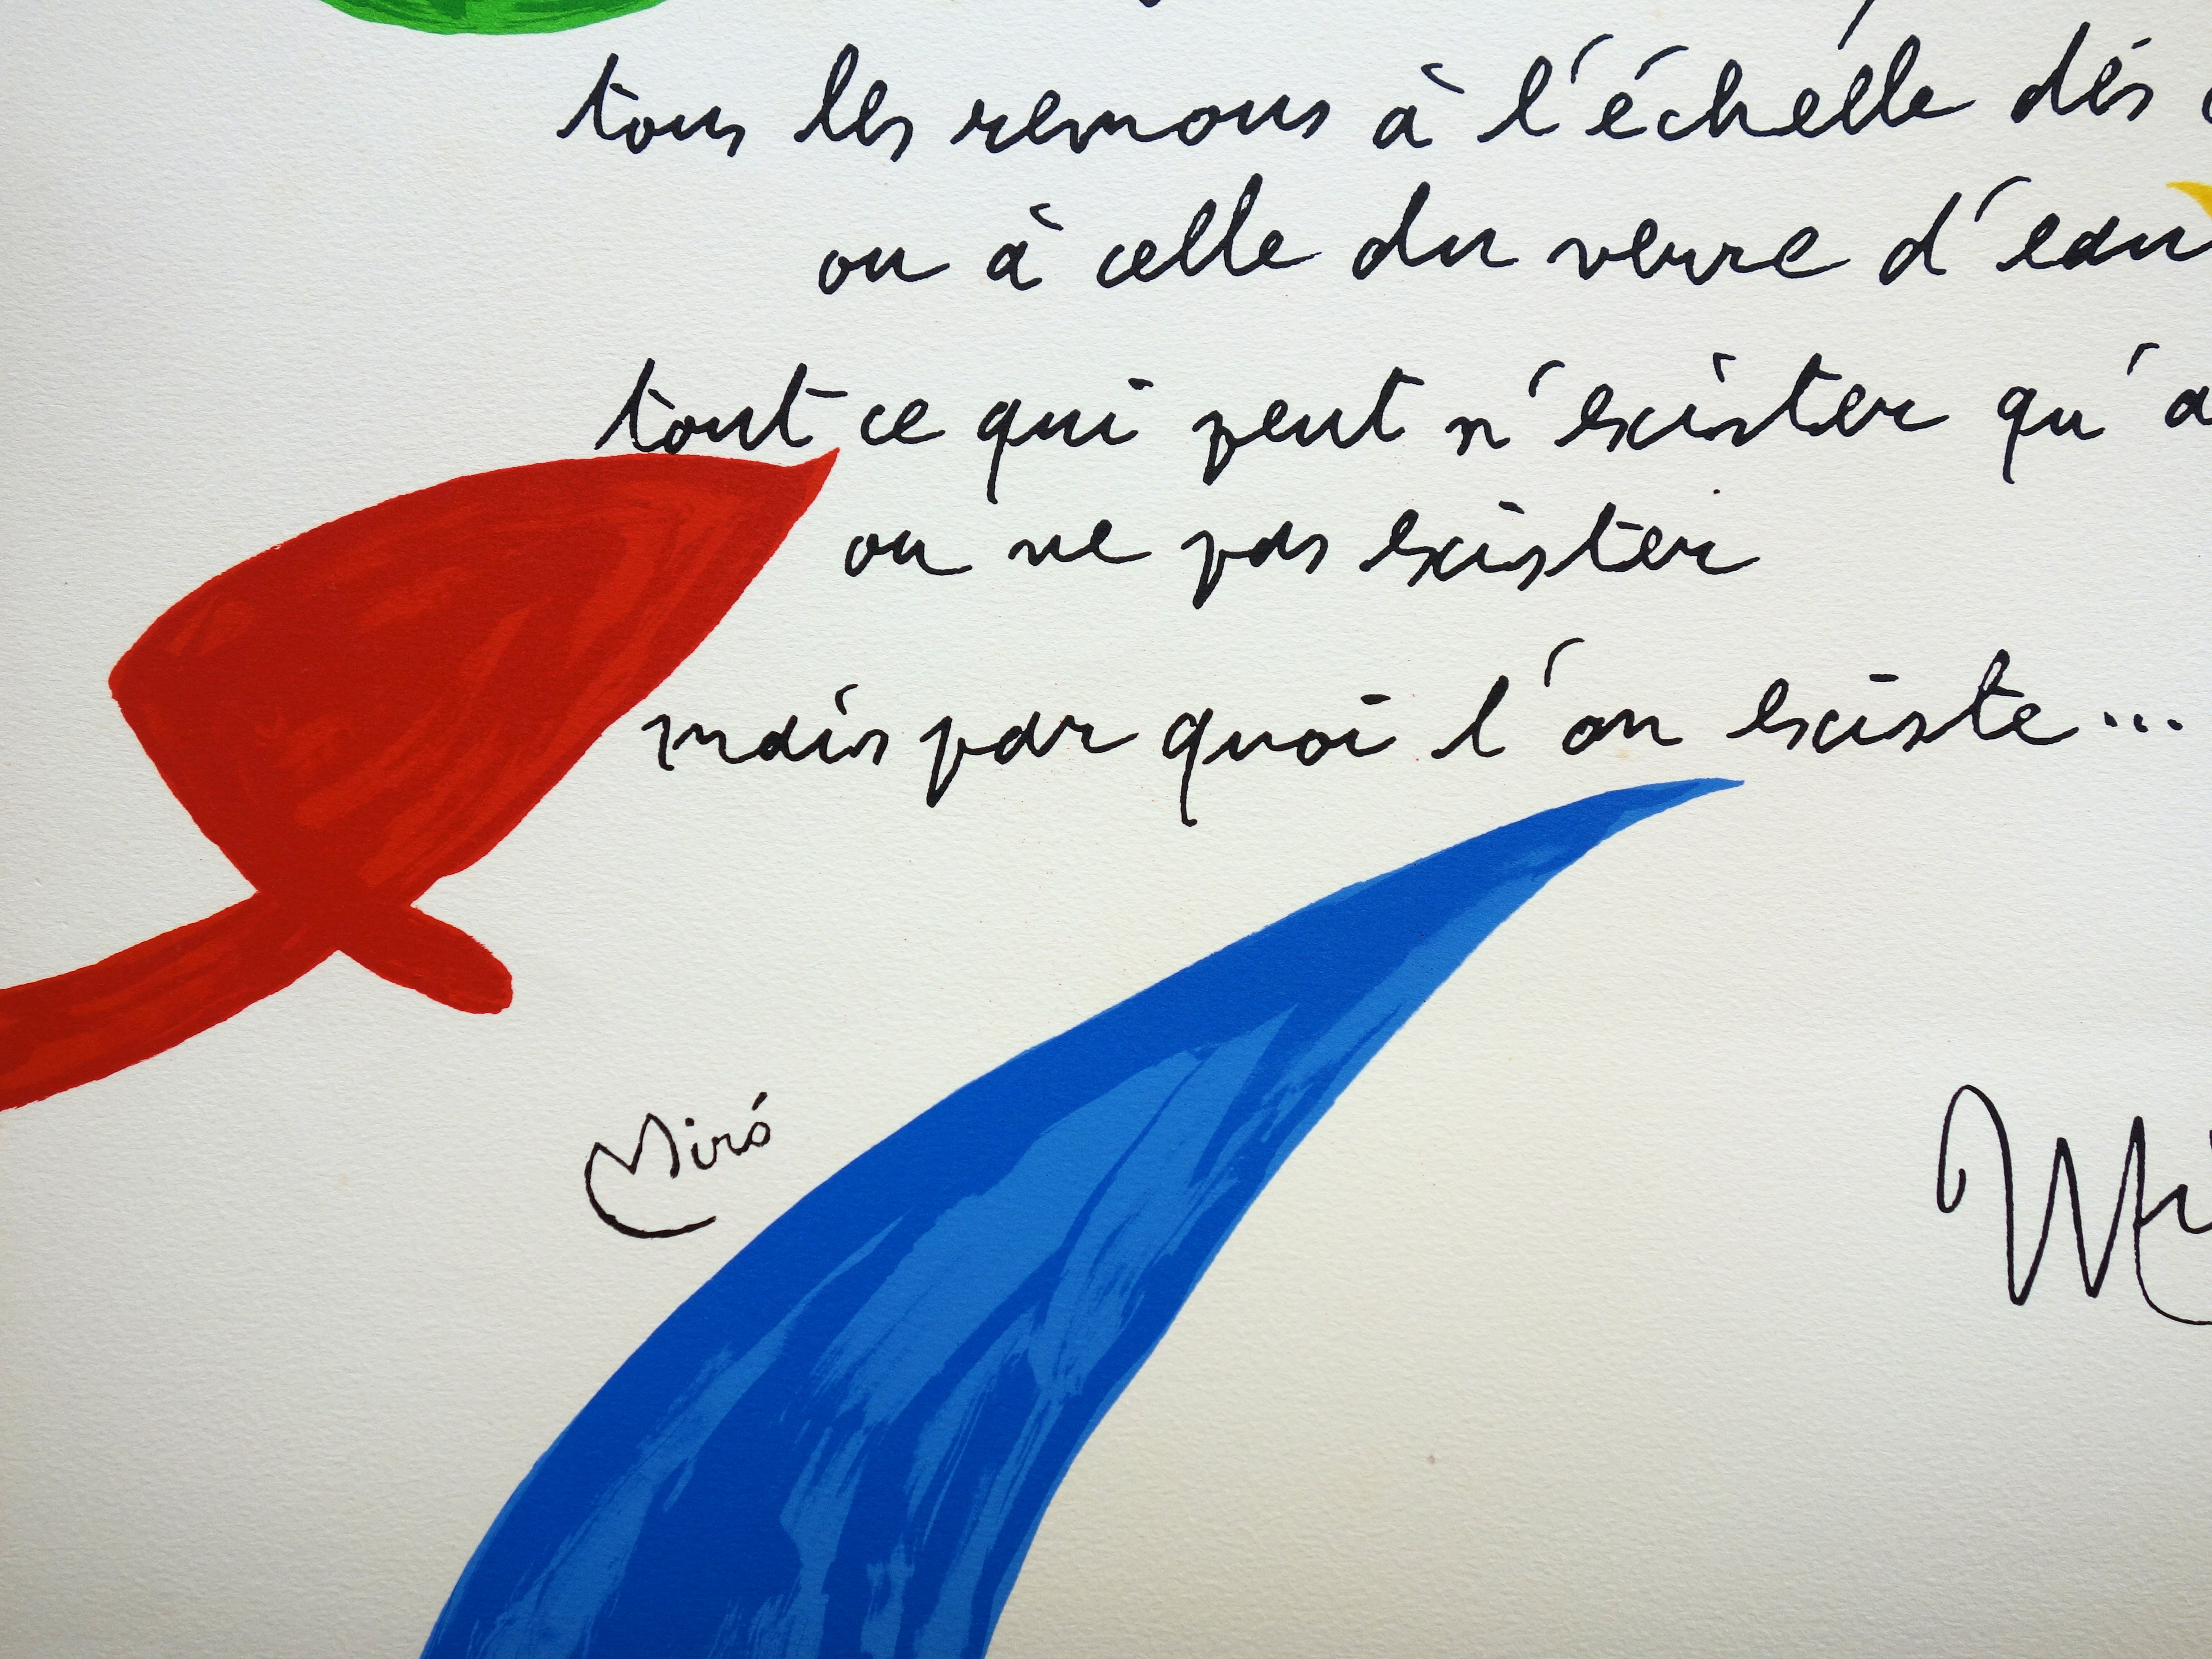 tous les remous à l'échelle des
ou à celle du verre d'eau
tout ce qui peut n'exister qu'a
ou ne pas exister
mais par quoi l'on existe...
Miró